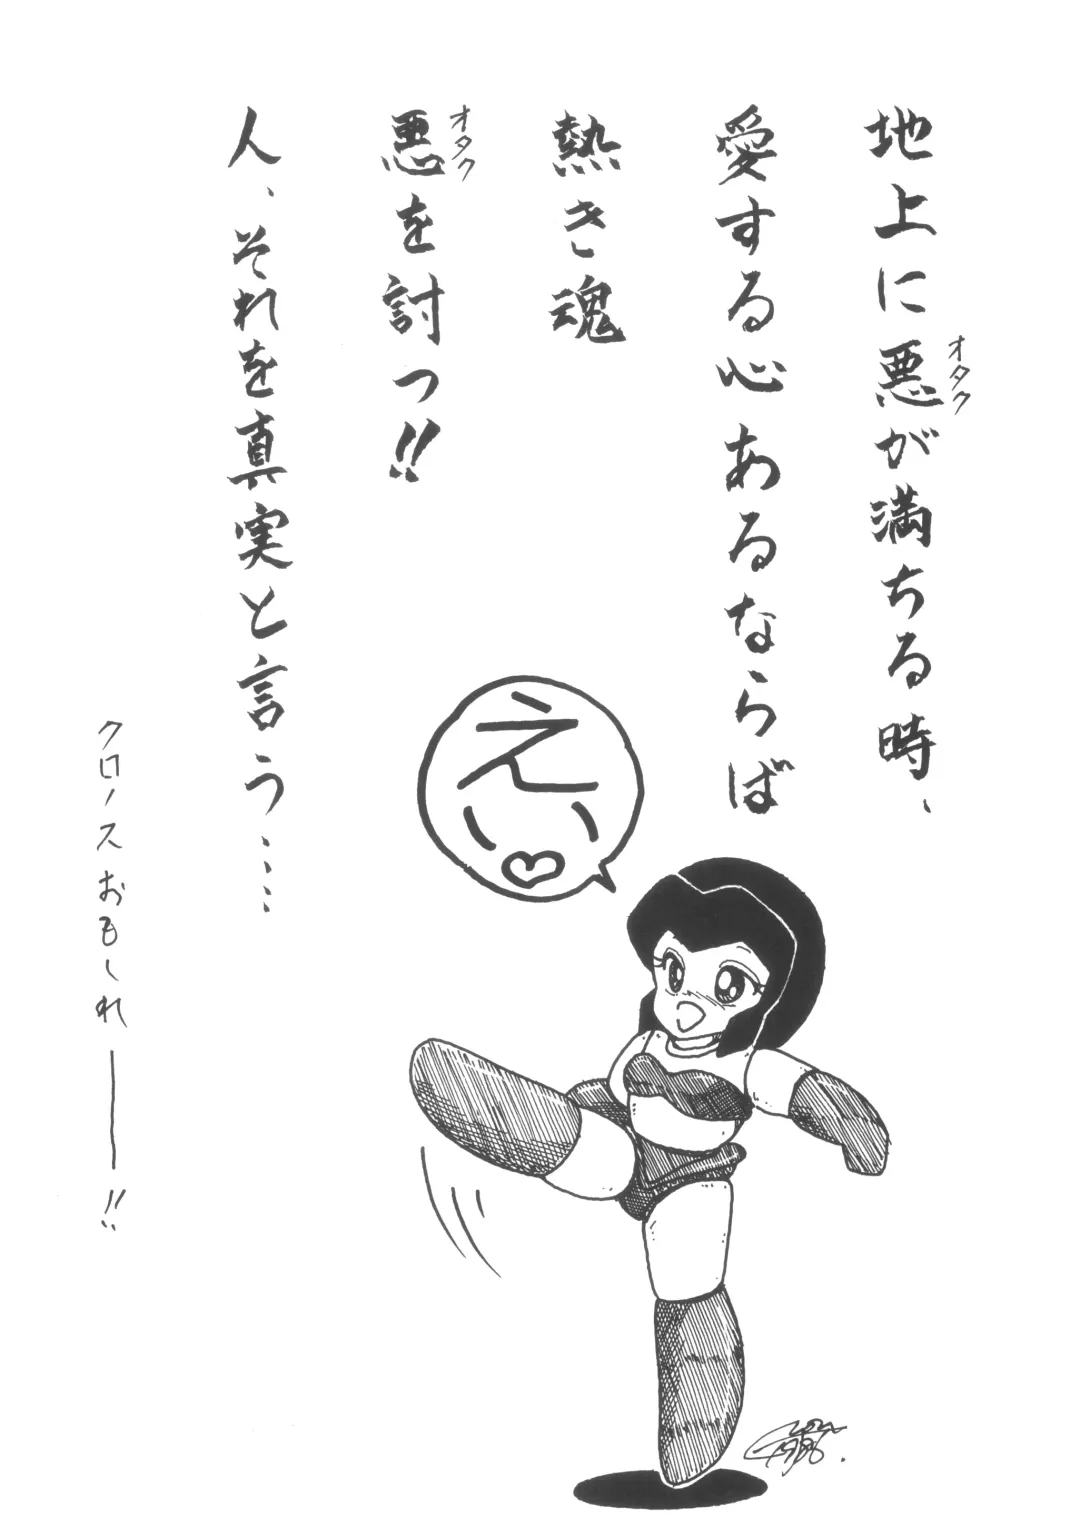 地上に悪が満ちる時、
オタク
愛する心あるならば
熱き魂
悪を討つ!!
オタク
人、それを真実と言う……
えい♡
クロノスおもしれ――!!
1986.